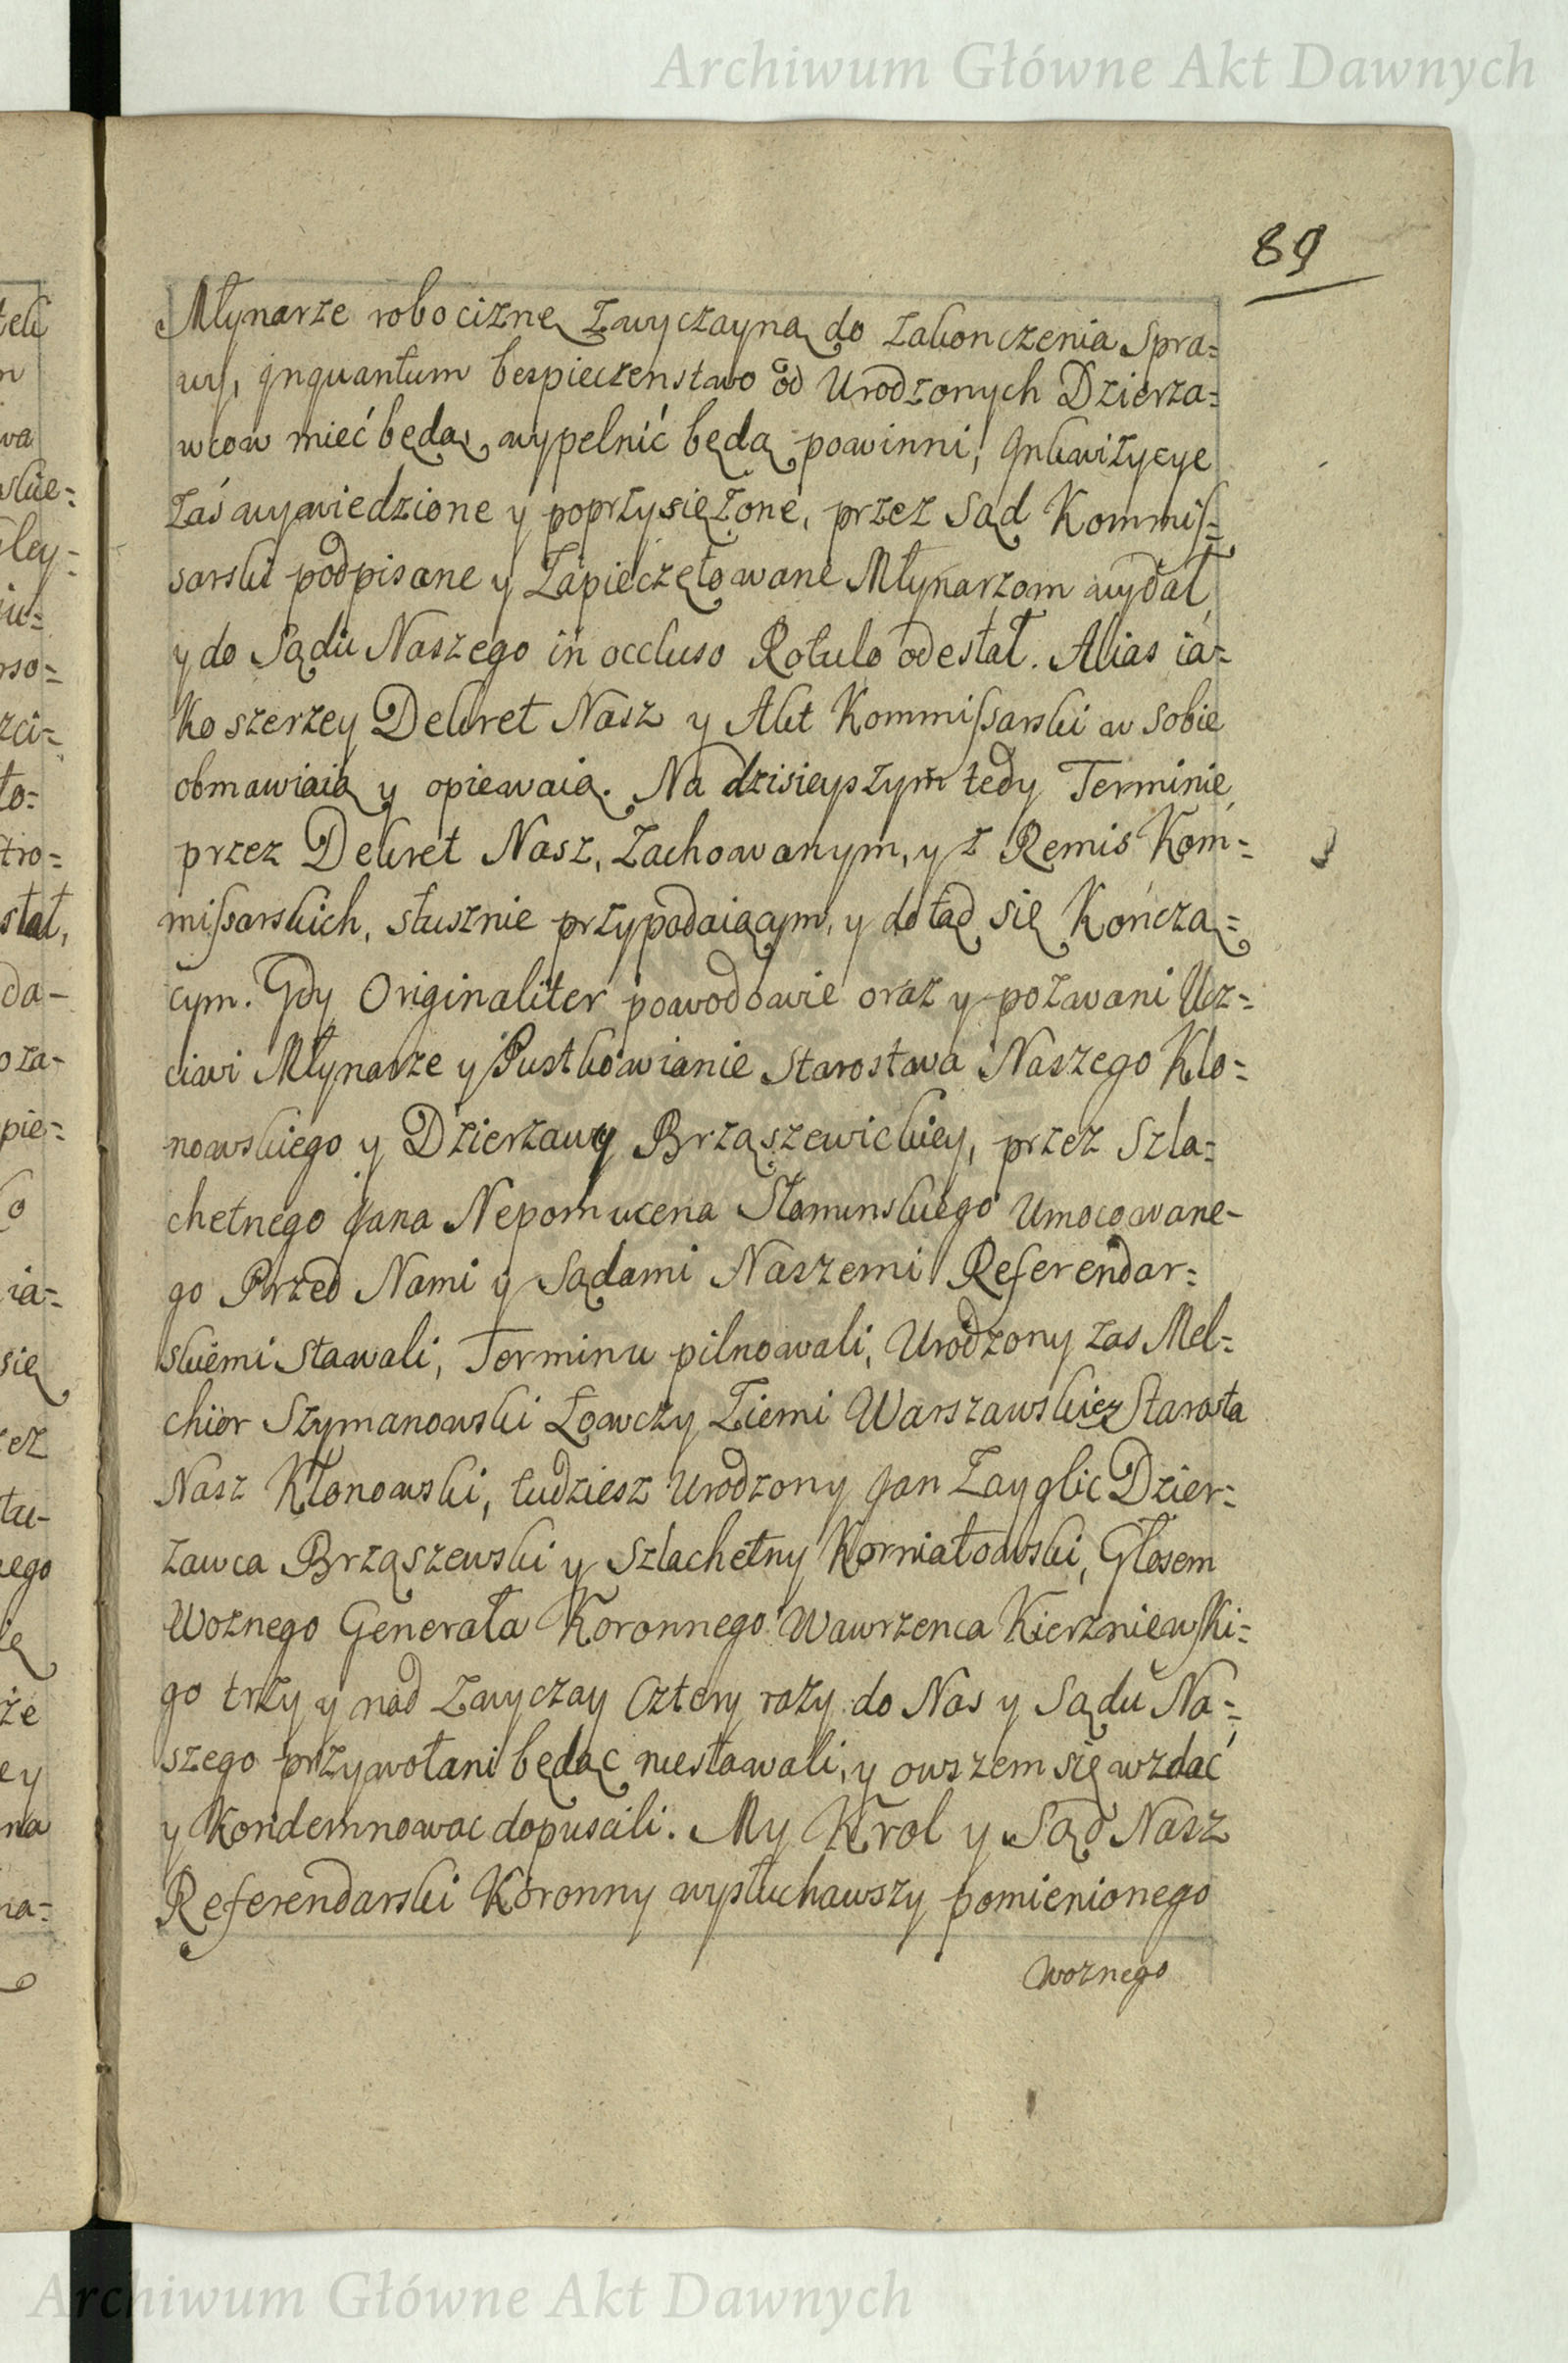 Archiwum Główne Akt Dawnych
89
Młynarze robociznę zwyczayną do zakonczenia Spra=
wy, jnquantum bespieczenstwo od Urodzonych Dzierza=
wcow mieć będą, wypełnić będą powinni, Jnkwizycye
zaś wywiedzione y poprzysiężone, przez Sąd Kommis=
sarski podpisane y zapieczętowane Młynarzom wydał,
y do Sądu Naszego in occluso Rotulo odesłał. Alias ia=
ko szerzey Dekret Nasz y Akt Kommissarski w sobie
obmawiaią y opiewaią. Na dzisieyszym tedy Terminie,
przez Dekret Nasz, zachowanym, y z Remis Kom=
missarskich, słusznie przypadaiącym, y dotąd się Kończą=
cym. Gdy Originaliter powodowie oraz y pozwani Ucz=
ciwi Młynarze y Pustkowianie Starostwa Naszego Klo=
nowskiego y Dzierzawy Brząszewickiey, przez Szla=
chetnego Jana Nepomucena Słominskiego Umocowane-
go Przed Nami y Sądami Naszemi Referendar=
skiemi stawali, Terminu pilnowali, Urodzony zas Mel=
chior Szymanowski Łowczy Ziemi Warszawskiey Starosta
Nasz Kłonowski, tudziesz Urodzony Jan Zayglic Dzier=
zawca Brząszewski y Szlachetny Korniatowski, Głosem
Woznego Generała Koronnego Wawrzenca Kierzniewski=
go trzy y nad zwyczay Cztery razy do Nas y Sądu Na=
szego przywołani będąc niestawali, y owszem się wzdać
y Kondemnowac dopuscili. My Krol y Sąd Nasz
Referendarski Koronny wysłuchawszy pomienionego
woznego
Archiwum Główne Akt Dawnych